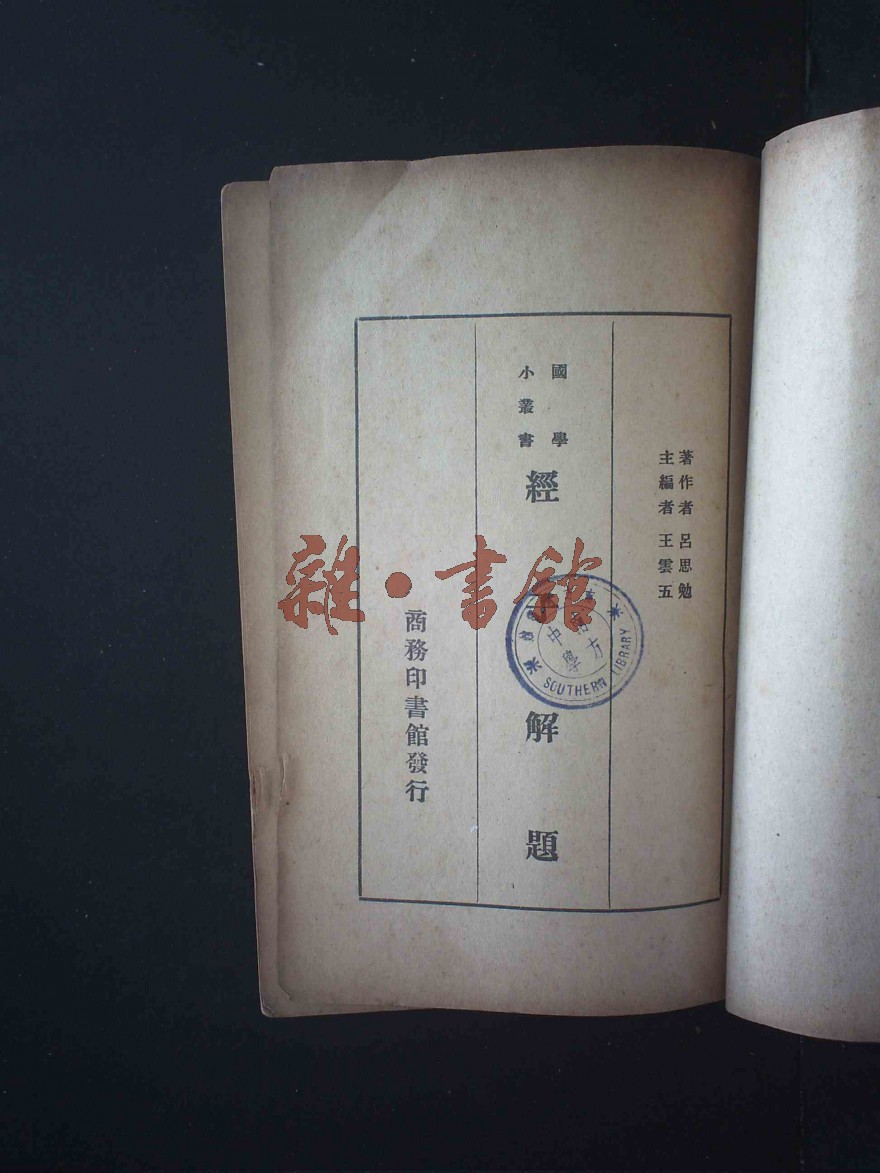 著作者 呂思勉
主編者 王雲五
國學
小叢書
經
解
題
商務印書館發行
雜·書館
中學
南方
SOUTHERN
LIBRARY